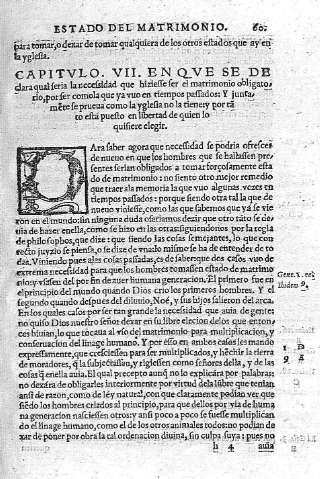 ESTADO DEL MATRIMONIO. 60.
para tomar, o dexar de tomar qualquiera de los otros estados que ay en
la yglesia.
CAPITVLO. VII. EN QVE SE DE
clara qual seria la necessidad que hiziesse ser el matrimonio obligato
rio, por ser como la que ya vuo en tiempos passados: Y junta
mẽte se prueua como la yglesia no la tiene y por tã
to esta puesto en libertad de quien lo
quisiere elegir.
PAra saber agora que necessidad se podria ofrescer
de nueuo en que los hombres que se hallassen pre
sentes serian obligados a tomar forçosamente esta
do de matrimonio: no siento otro mejor remedio
que traer a la memoria la que vuo algunas vezes en
tiempos passados: porque siendo otra tal la que de
nueuo viniesse, como las que sabemos que ya se vie
ron en el mundo: sin ninguna duda osariamos dezir que otro tãto se de
uia de hazer en ella, como se hizo en las otras: siguiendonos por la regla
de philosophos, que dize: que siendo las cosas semejantes, lo que con
recto juyzio se piensa, o se dize de vna: lo mismo se ha de entender de to
das. Viniendo pues a las cosas passadas, es de saber que dos casos vuo de
extrema necessidad para que los hombres tomassen estado de matrimo
nio: y vsassen del por fin de auer humana generacion. El primero fue en
el principio del mundo quando Dios crio los primeros hombres. Y el
segundo quando despues del diluuio, Noé, y sus hijos salieron del arca.
En los quales casos por ser tan grande la necessidad que auia de gente:
no quiso Dios nuestro señor dexar en su libre elecion de los que enton-
ces biuian, lo que tocaua al vso del matrimonio para multiplicacion, y
conseruacion del linage humano. Y por esso en ambos casos les mando
expressamente, que cresciessen para ser multiplicados, y hẽchir la tierra
de moradores, q̃ la subjectassen, y rigiessen como señores della, y de las
cosas q̃ en ella auia. El qual precepto aunq̃ no lo explicára por palabras:
no dexára de obligarles interiormente por virtud de la libre que tenian
ansi de razon, como de ley natural, con que claramente podian ver que
siẽdo los hombres criados al principio, para que dellos por via de huma
na generacion nasciessen otros: y ansi poco a poco se fuesse multiplican
do el linage humano, como el de los otros animales todos: no podian de
xar de poner por obra la tal ordenacion diuina, sin culpa suya: pues no
h 4 auia
Gene. 1.